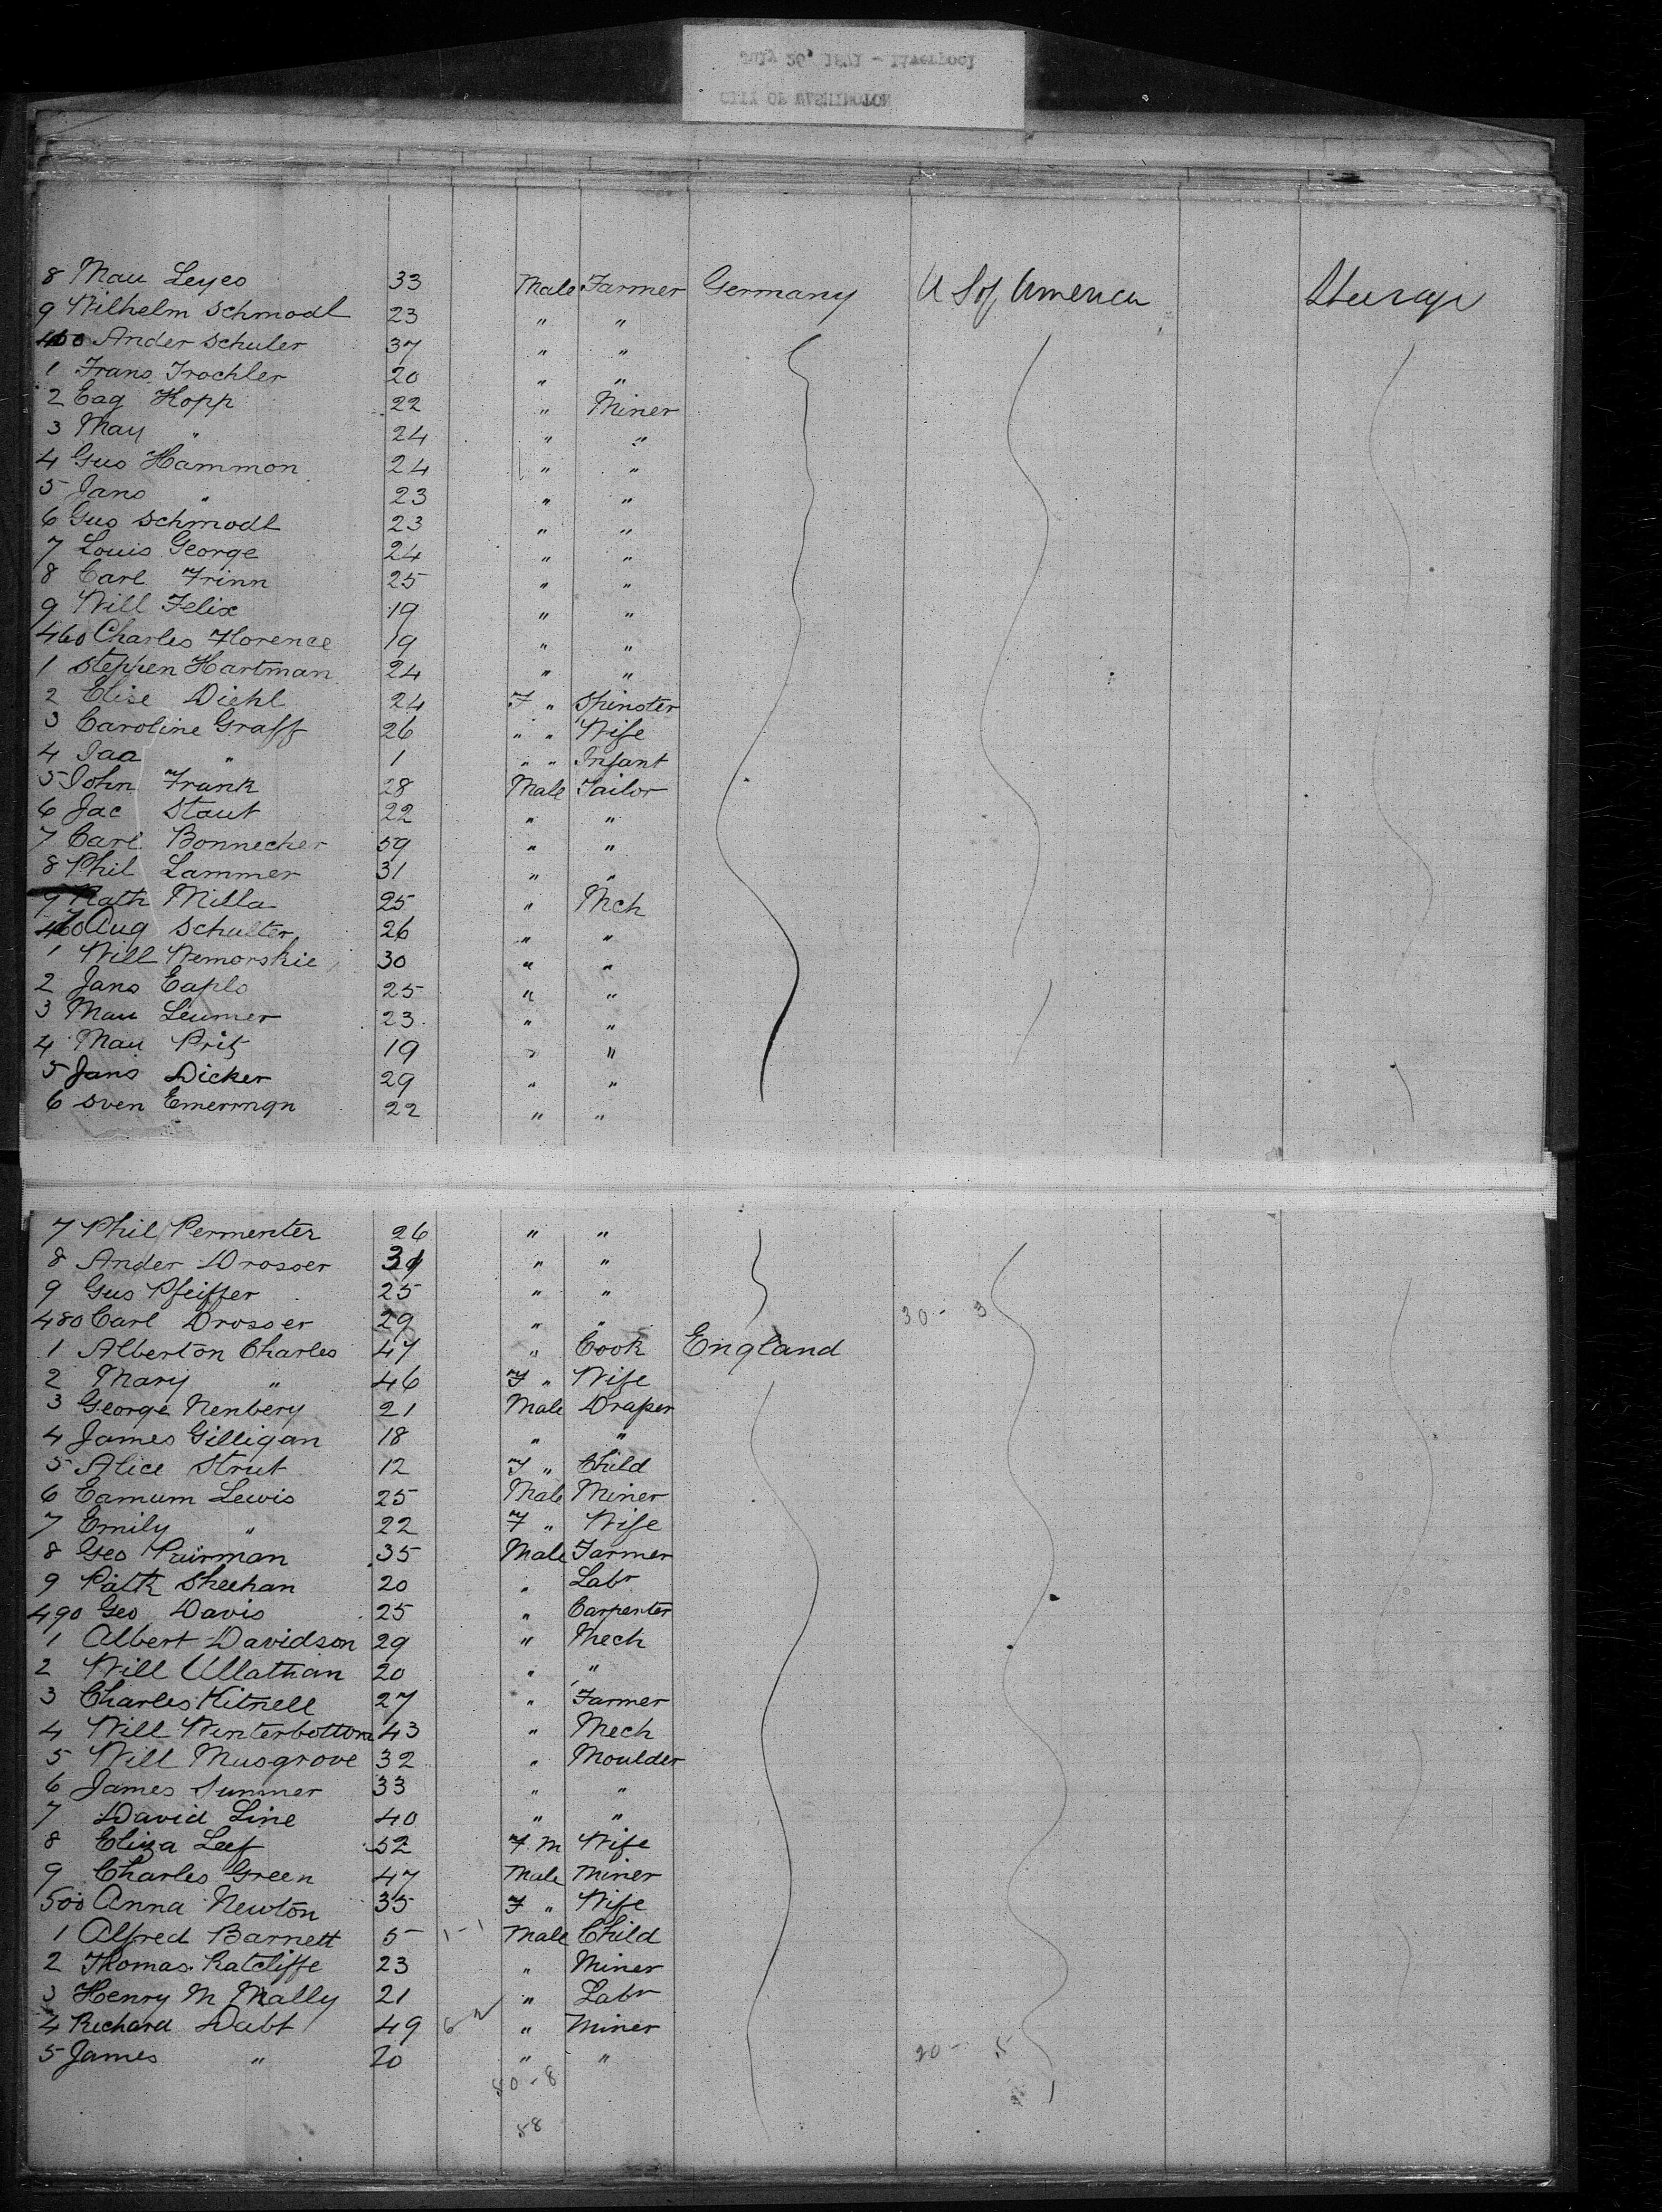 July 26' 1871 - Liverpool
CITY OF WASHINGTON
8 Mau Leyes 33 Male Farmer Germany U S of America Steerage
9 Wilhelm Schmodl 23 " "
450 Ander Schuler 37 " "
1 Frans Trochler 20 " "
2 Eag Kopp 22 " Miner
3 May " 24 " "
4 Gus Hammon 24 " "
5 Jans " 23 " "
6 Gus Schmodl 23 " "
7 Louis George 24 " "
8 Carl Frinn 25 " "
9 Will Felix 19 " "
460 Charles Florence 19 " "
1 Stephen Hartman 24 " "
2 Elise Diehl 24 F " Spinster
3 Caroline Graff 26 " " Wife
4 Jaa " 1 " " Infant
5 John Frank 28 Male Tailor
6 Jac Staut 22 " "
7 Carl Bonnecker 59 " "
8 Phil Lammer 31 " "
9 Nath Milla 25 " Mch
470 Aug Schulter 26 " "
1 Will Nemorskie 30 " "
2 Jans Eaplo 25 " "
3 Mau Leumer 23 " "
4 Mau Pritz 19 " "
5 Jans Dicker 29 " "
6 Sven Emermgn 22 " "
7 Phil Permenter 26 " "
8 Ander Drosser 31 " "
9 Gus Pfeiffer 25 " "
480 Carl Drosser 29 " " 30 - 3
1 Alberton Charles 47 " Cook England
2 Mary " 46 F " Wife
3 George Nenbery 21 Male Draper
4 James Gilligan 18 " "
5 Alice Strut 12 F " Child
6 Eamum Lewis 25 Male Miner
7 Emily " 22 F " Wife
8 Geo Pairman 35 Male Farmer
9 Patk Sheehan 20 " Labr
490 Geo Davis 25 " Carpenter
1 Albert Davidson 29 " Mech
2 Will Ullathan 20 " "
3 Charles Kitnell 27 " Farmer
4 Will Winterbottom 43 " Mech
5 Will Musgrove 32 " Moulder
6 James Sumner 33 " "
7 David Line 40 " "
8 Eliza Leef 52 F M Wife
9 Charles Green 47 Male Miner
500 Anna Newton 35 F " Wife
1 Alfred Barnett 5 1-1 Male Child
2 Thomas Ratcliffe 23 " Miner
3 Henry M Mally 21 " Labr
4 Richard Dabt 49 " Miner
5 James " 20 " " 20 - 5
50-8
58